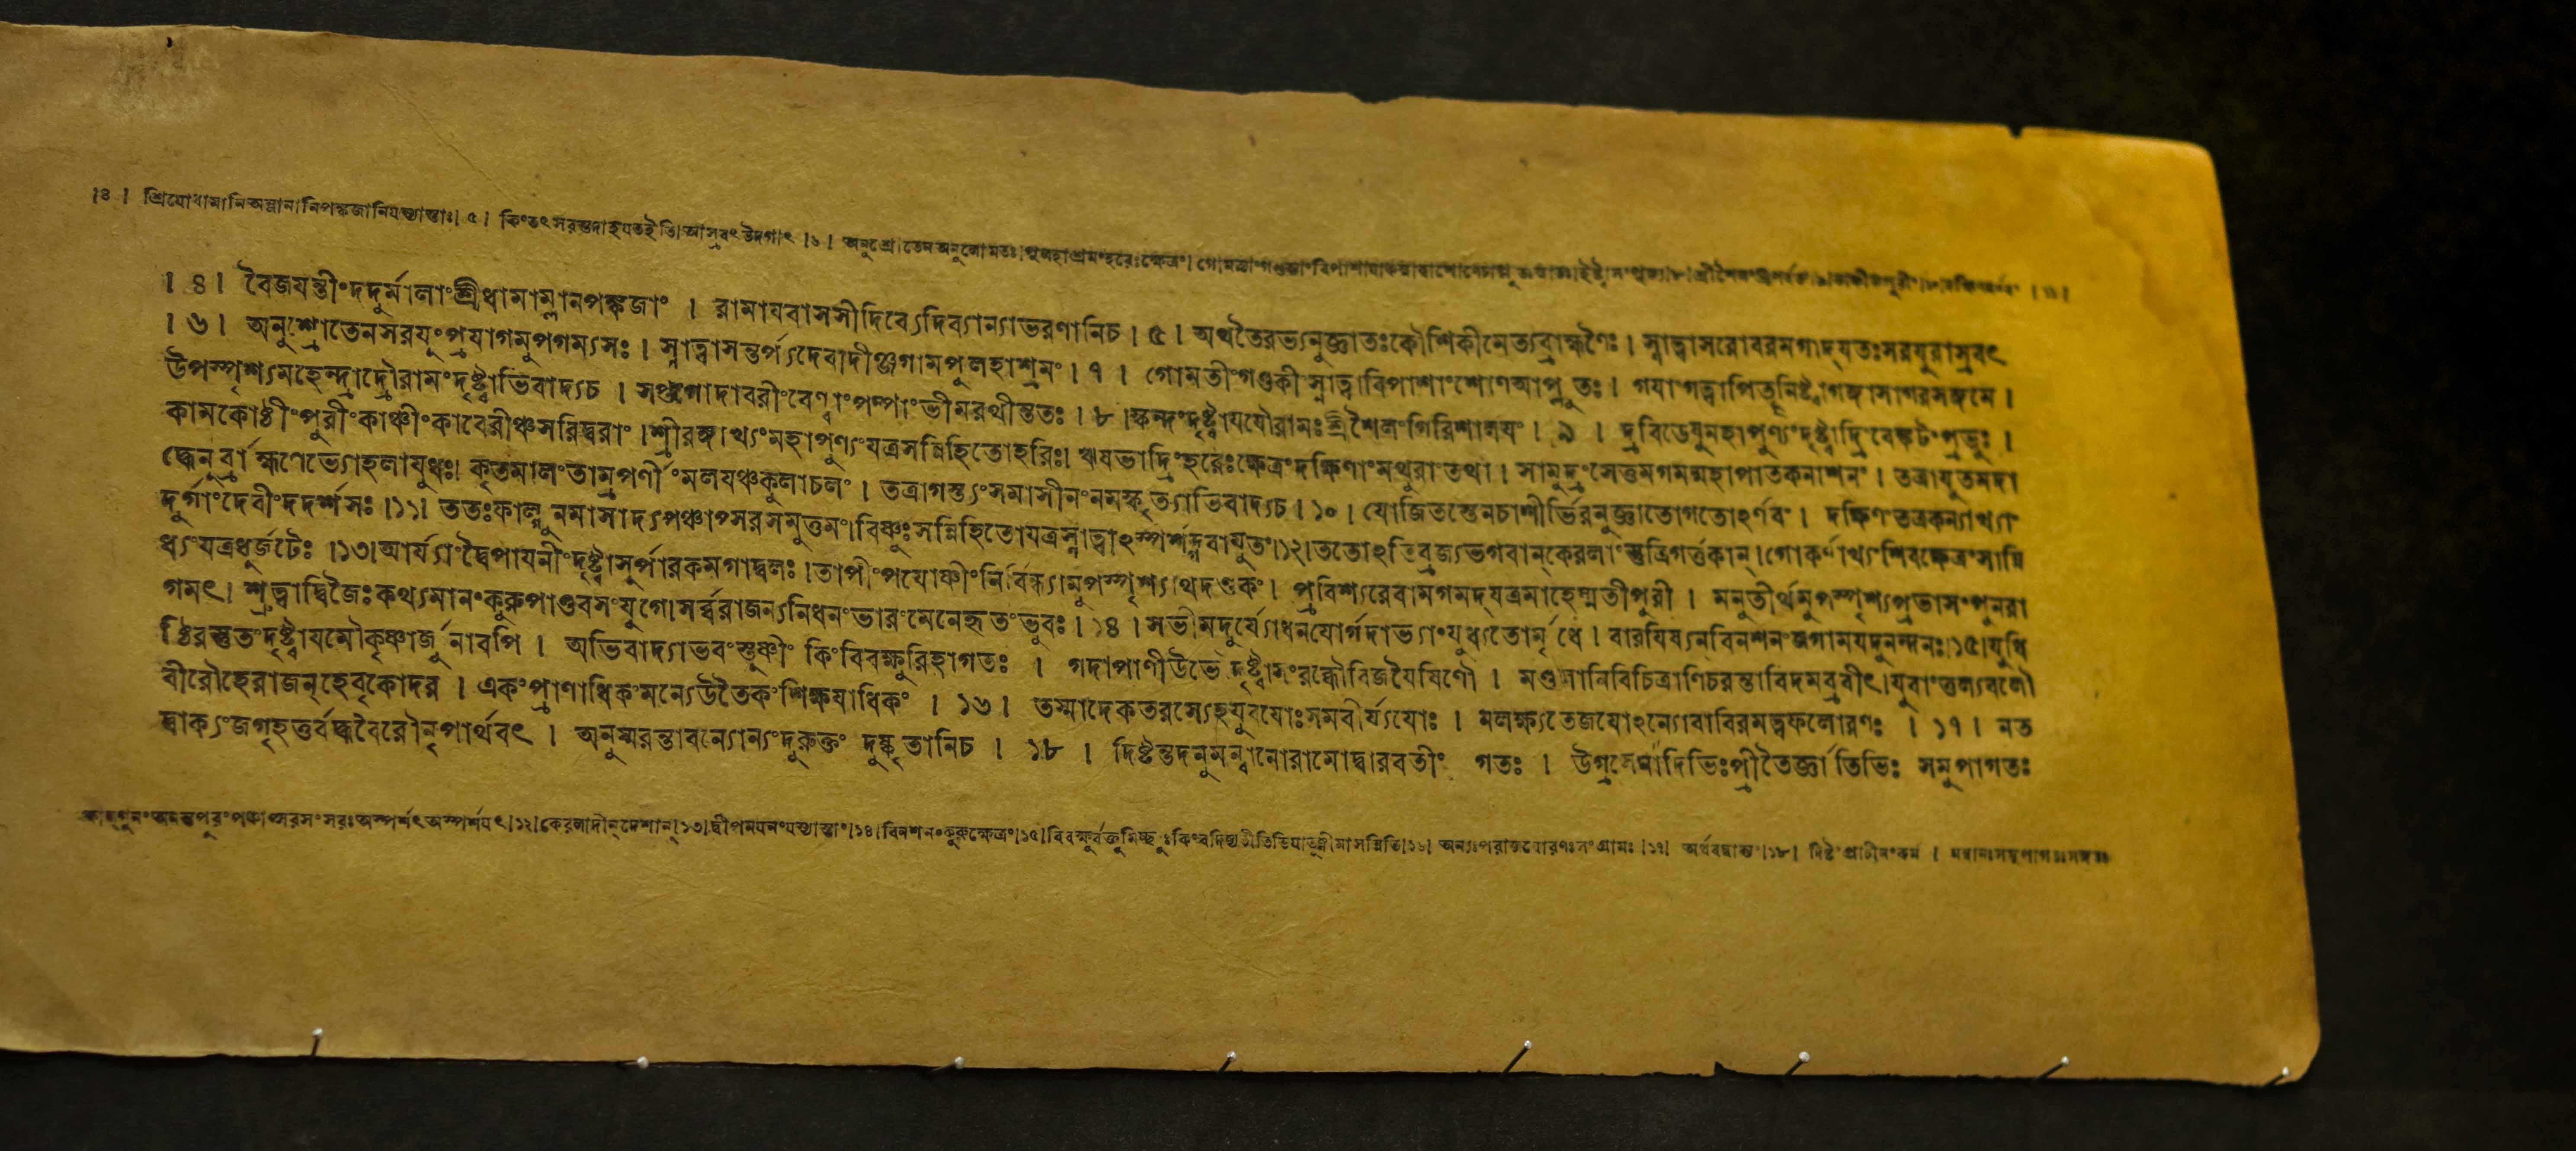 ।৪। শ্রিযোধামানিঅম্লানানিপঙ্কজানিযস্যাস্তাং। ৫। কিংতৎসরস্তদাহযতইতি।আস্রবৎউদগাৎ।৬। অনুশ্রোতেনঅনুলোমতঃ।পুলহাশ্রমংহরেঃক্ষেত্রং।
।৪। বৈজযন্তীংদদুর্মালাংশ্রীধামাম্লানপঙ্কজাং । রামাযবাসসীদিব্যেদিব্যান্যাভরণানিচ। ৫। অথতৈরভ্যনুজ্ঞাতঃকৌশিকীমেত্যব্রাহ্মণৈঃ। স্নাত্বাসরোবরমগাদ্যতঃসরযুরাস্রবৎ
।৬। অনুশ্রোতেনসরযুংপ্রযাগমুপগম্যসঃ। স্নাত্বাসন্তর্প্যদেবাদীঞ্জগামপুলহাশ্রমং।৭। গোমতীংগণ্ডকীংস্নাত্বাবিপাশাংশোণআপ্লুতঃ। গযাংগত্বাপিতৃনিষ্ট্বাগঙ্গাসাগরসঙ্গমে।
উপস্পৃশ্যমহেন্দ্রাদ্রৌরামংদৃষ্ট্বাভিবাদ্যচ । সপ্তগোদাবরীংবেণ্বাংপম্পাংভীমরথীন্ততঃ।৮।স্কন্দংদৃষ্ট্বাযযৌরামঃশ্রীশৈলংগিরিশালযং।৯। দ্রবিডেষুমহাপুণ্যংদৃষ্ট্বাদ্রিংবেঙ্কটংপ্রভুঃ।
কামকোষ্ঠীংপুরীংকাঞ্চীংকাবেরীঞ্চসরিদ্বরাং।শ্রীরঙ্গাখ্যংমহাপুণ্যংযত্রসন্নিহিতোহরিঃ। ঋষভাদ্রিংহরেঃক্ষেত্রংদক্ষিণাংমথুরাংতথা। সামুদ্রংসেত্তমগমন্মহাপাতকনাশনং। তত্রাযুতমদা
দ্ধেনুর্ব্রাহ্মণেভ্যোহলাযুধঃ। কৃতমালংতাম্রপর্ণীংমলযঞ্চকুলাচলং । তত্রাগস্ত্যংসমাসীনংনমস্কৃত্যাভিবাদ্যচ।১০। যোজিতস্তেনচাশীর্ভিরনুজ্ঞাতোগতোঽর্ণবং। দক্ষিণংতত্রকন্যাখ্যাং
দুর্গাংদেবীংদদর্শসঃ।১১। ততঃফাল্গুনমাসাদ্যপঞ্চাপ্সরসমুত্তমং।বিষ্ণুঃসন্নিহিতোযত্রস্নাত্বাঽস্পর্শদ্গবাযুতং।১২।ততোঽভিব্রজ্যভগবান্কেরলাংস্তুত্রিগর্ত্তকান্।গোকর্ণাখ্যংশিবক্ষেত্রংসান্নি
ধ্যংযত্রধূর্জটেঃ ।১৩।আর্য্যাংদ্বৈপাযনীংদৃষ্ট্বাসূর্পারকমগাদ্বলঃ।তাপীংপযোষ্ণীংনির্বিন্ধ্যামুপস্পৃশ্যাথদণ্ডকং। প্রবিশ্যরেবামগমদ্যত্রমাহেষ্মতীপুরী । মনুতীর্থমুপস্পৃশ্যপ্রভাসংপুনরা
গমৎ। শ্রুত্বাদ্বিজৈঃকথ্যমানংকুরুপাণ্ডবসংযুগে।সর্ব্বরাজন্যনিধনংভারংমেনেহৃতংভুবঃ।১৪। সভীমদুর্য্যোধনযোর্গদাভ্যাংযুধ্যতোর্মৃধে। বারযিষ্যনবিনশনংজগামযদুনন্দনঃ।১৫।যুধি
ষ্ঠিরস্তুতংদৃষ্ট্বাযমৌকৃষ্ণার্জুনাবপি । অভিবাদ্যাভবংস্তুষ্ণীং কিংবিবক্ষুরিহাগতঃ । গদাপাণীউভৌদৃষ্ট্বাসংরব্ধৌবিজযৈষিণৌ । মণ্ডলানিবিচিত্রাণিচরন্তাবিদমব্রবীৎ।যুবাংতুল্যবলৌ
বীরৌহেরাজন্হেবৃকোদর । একংপ্রাণাধিকংমন্যেউতৈকংশিক্ষযাধিকং । ১৬। তস্মাদেকতরস্যেহযুবযোঃসমবীর্য্যযোঃ । নলক্ষ্যতেজযোঽন্যোবাবিরমত্বফলোরণঃ ।১৭। নত
দ্বাক্যংজগৃহতুর্বদ্ধবৈরৌনৃপার্থবৎ । অনুস্মরন্তাবন্যোন্যংদুরুক্তং দুষ্কৃতানিচ । ১৮। দিষ্টন্তদনুমন্বানোরামোদ্বারবতীং গতঃ । উগ্রসেনাদিভিঃপ্রীতৈর্জ্ঞাতিভিঃ সমুপাগতঃ
পঞ্চাপ্সরসংসরঃঅস্পর্শৎঅস্পর্শযৎ।১২।কেরলাদীন্দেশান্।১৩।দ্বীপমযনংযস্যাস্তাং।১৪।বিনশনংকুরুক্ষেত্রং।১৫। অন্যঃপরাজযোরণঃসংগ্রামঃ।১৭। অর্থবদ্বাক্যং।১৮। দিষ্টংপ্রাচীনংকর্ম ।